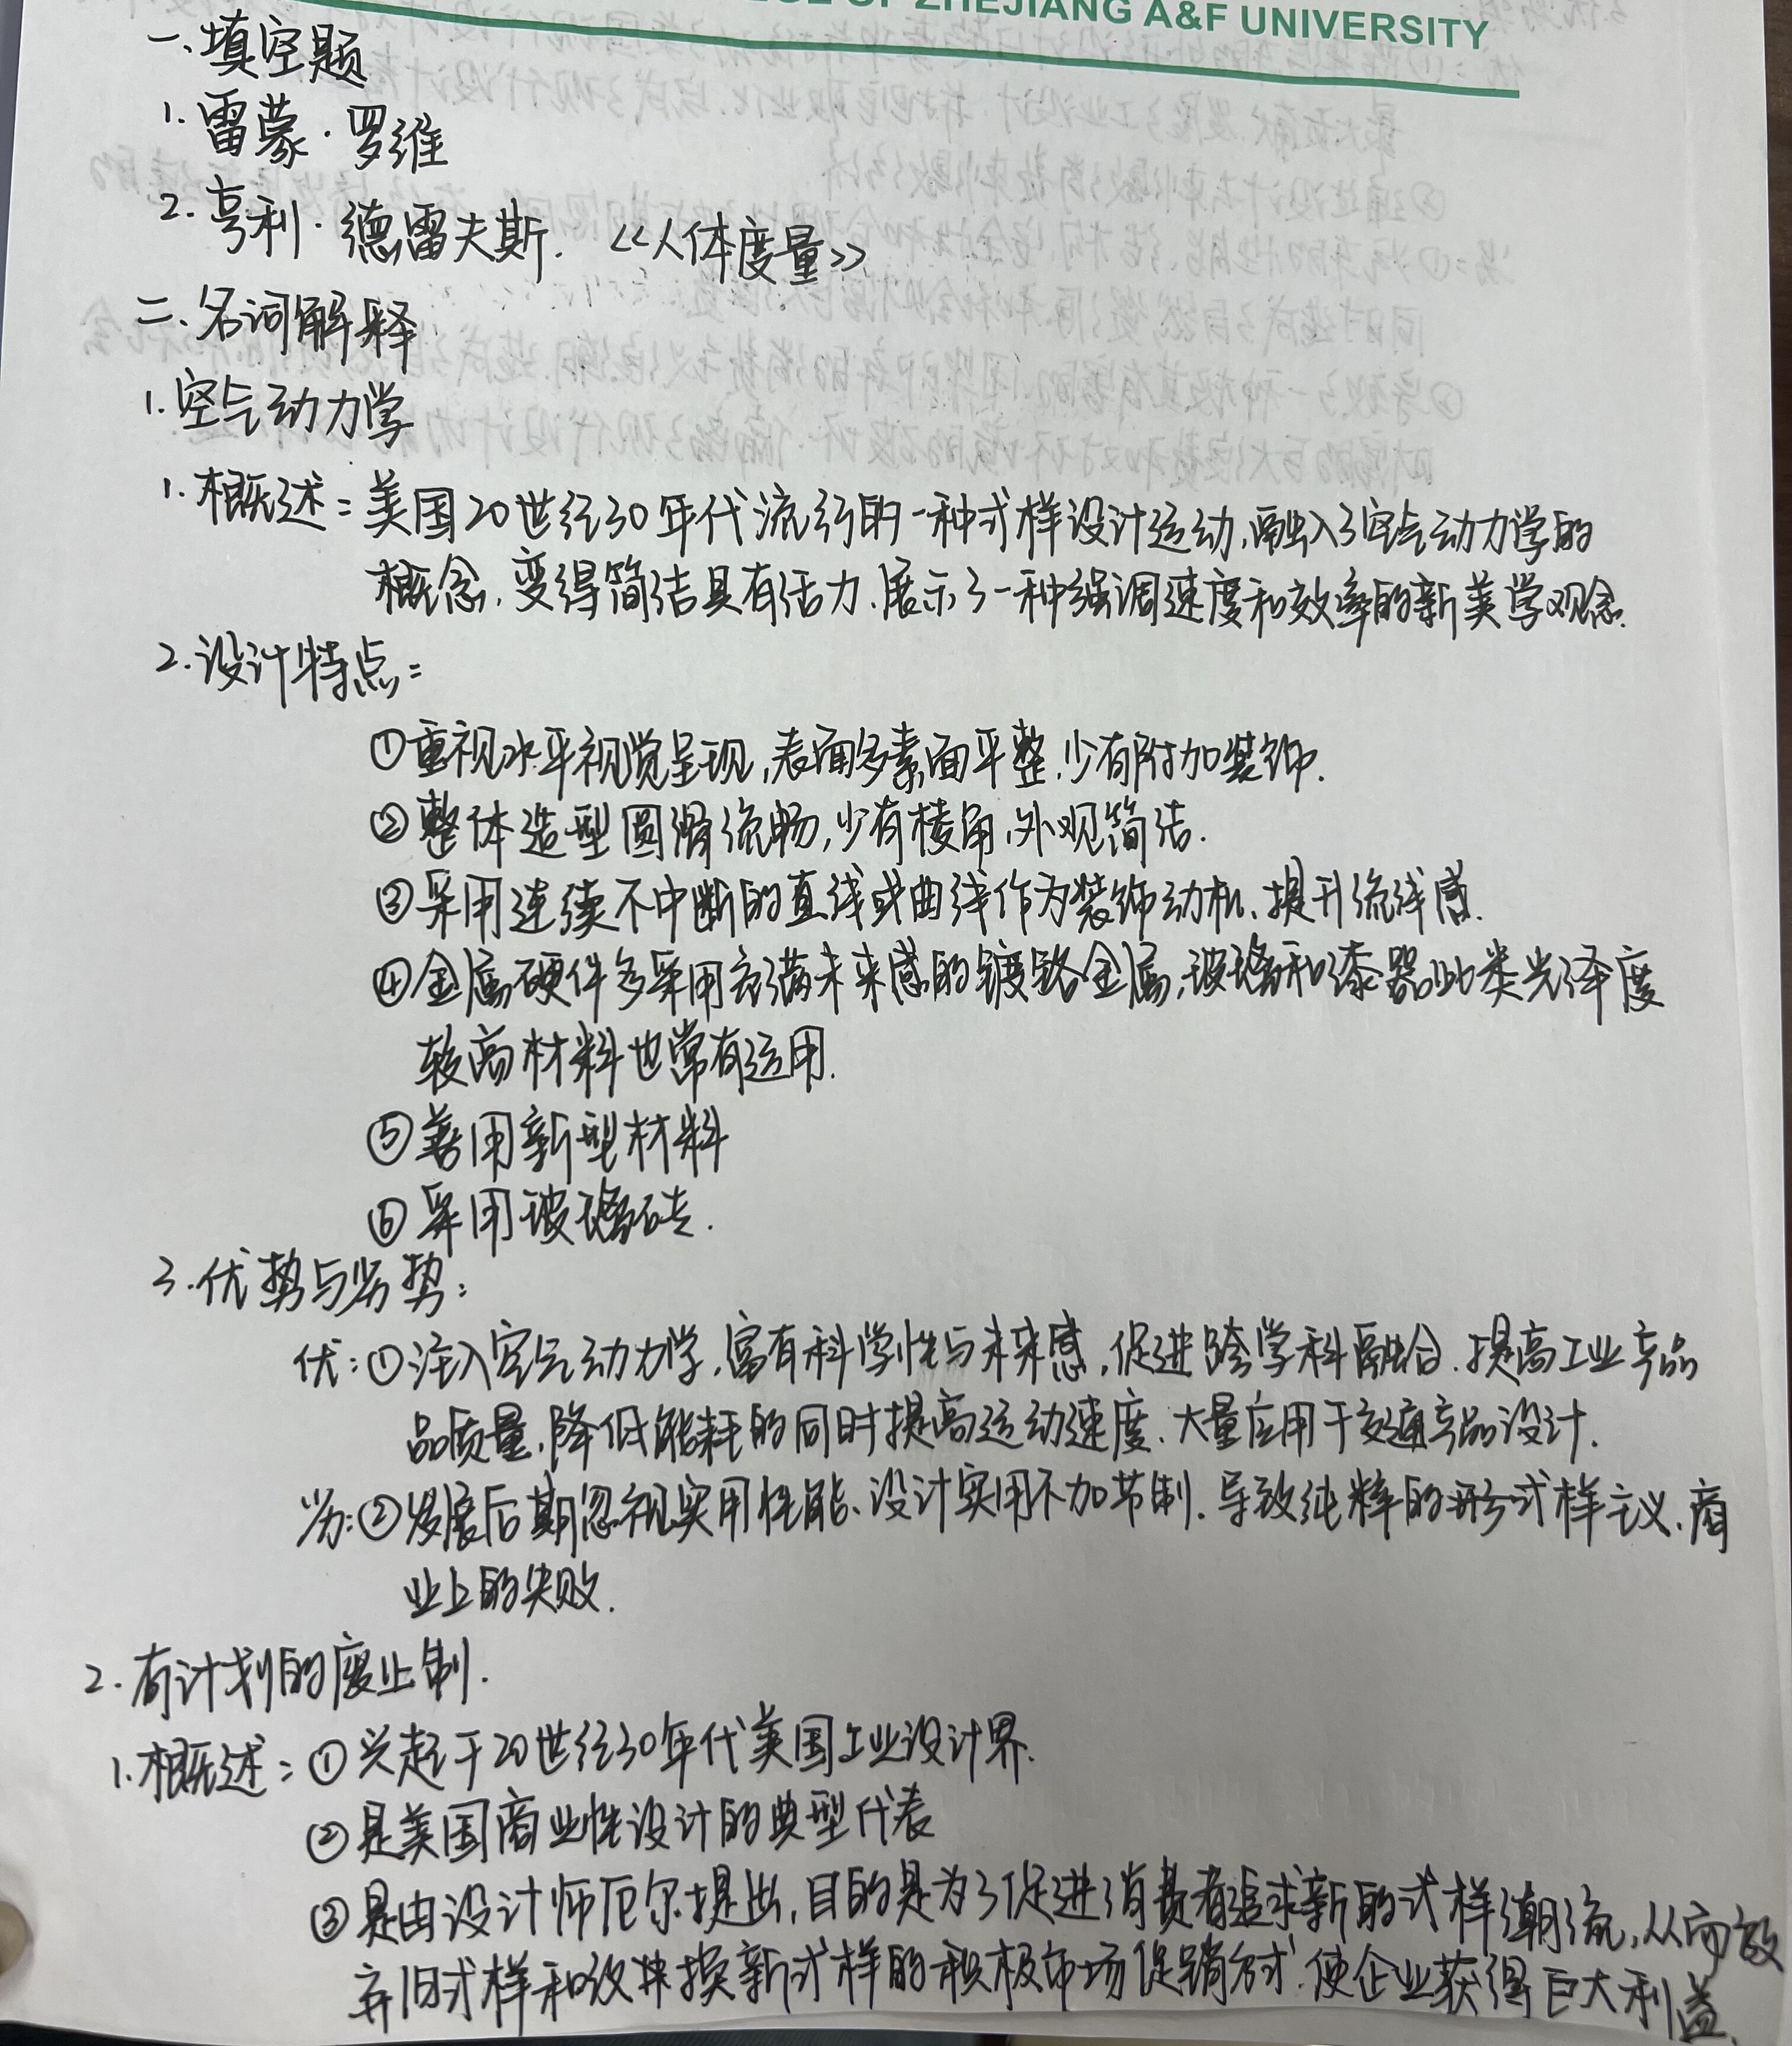 ZHEJIANG A&F UNIVERSITY
一、填空题
1. 雷蒙·罗维
2. 亨利·德雷夫斯. 《人体度量》
二、名词解释
1. 空气动力学
1. 概述：美国20世纪30年代流行的一种式样设计运动,融入了空气动力学的
概念、变得简洁具有活力、展示了一种强调速度和效率的新美学观念.
2. 设计特点：
①重视水平视觉呈现,表面多素面平整,少有附加装饰.
②整体造型圆滑流畅,少有棱角,外观简洁.
③采用连续不中断的直线或曲线作为装饰动机、提升流线感.
④金属硬件多采用充满未来感的镀铬金属,玻璃和漆器此类光泽度
较高材料也常有运用.
⑤善用新型材料
⑥采用玻璃砖.
3. 优势与劣势：
优：①注入空气动力学,富有科学性与未来感,促进跨学科融合.提高工业产品
品质量,降低能耗的同时提高运动速度、大量应用于交通产品设计.
劣：②发展后期忽视实用性能、设计实用不加节制.导致纯粹的形式样主义、商
业上的失败.
2. 有计划的废止制.
1. 概述：①兴起于20世纪30年代美国工业设计界.
②是美国商业性设计的典型代表
③是由设计师厄尔提出,目的是为了促进消费者追求新的式样潮流,从而放
弃旧式样和改换新式样的积极市场促销方式.使企业获得巨大利益.